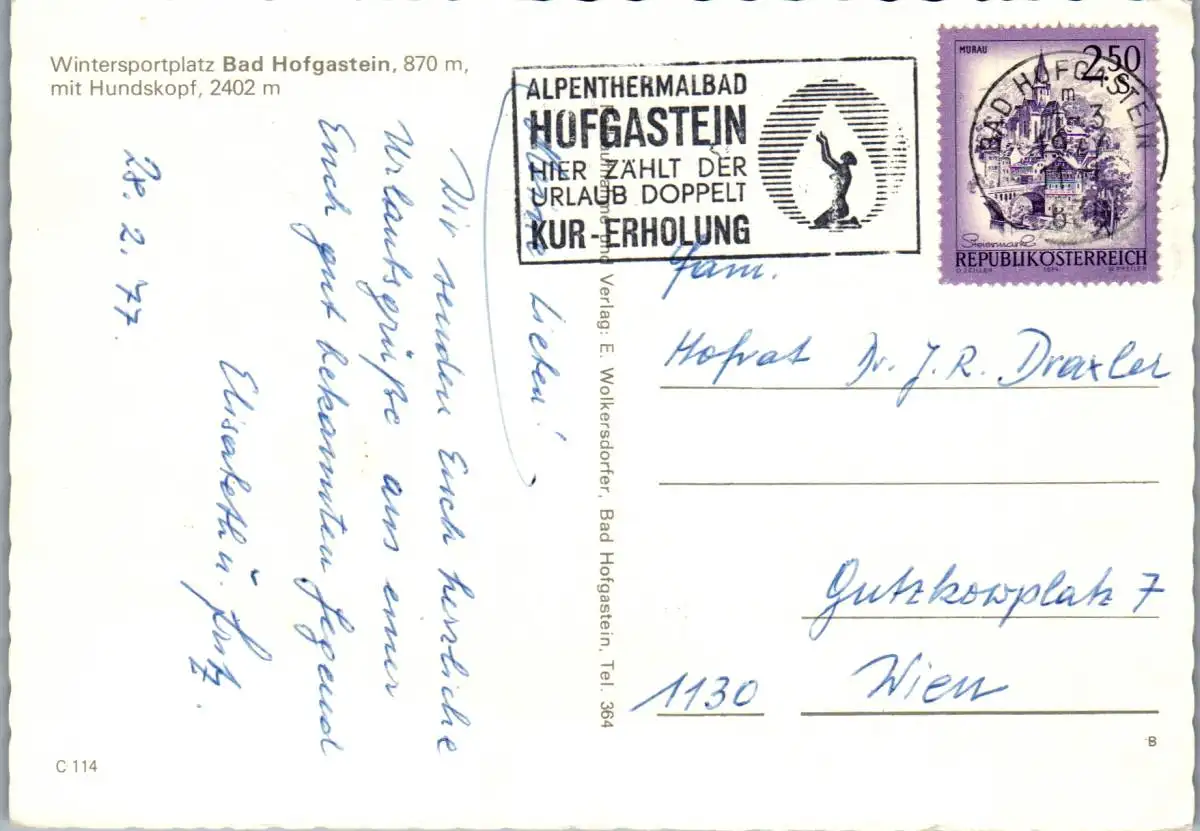 Wintersportplatz Bad Hofgastein, 870 m,
mit Hundskopf, 2402 m
ALPENTHERMALBAD
HOFGASTEIN
HIER ZÄHLT DER
URLAUB DOPPELT
KUR-ERHOLUNG
MURAU
2.50
S
BAD HOFGASTEIN
Steiermark
REPUBLIK ÖSTERREICH
Meine Lieben!
Wir senden Euch herzliche
Urlaubsgrüße aus einer
Euch gut bekannten Gegend
Elisabeth u. Fritz.
28. 2. 77
und Verlag: E. Wolkersdorfer, Bad Hofgastein, Tel. 364
Fam.
Hofrat Dr. J. R. Draxler
Gutzkowplatz 7
1130 Wien
C 114
B